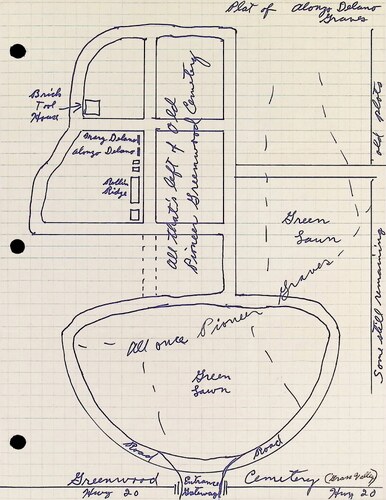 Plat of Alonzo Delano
Graves
Brick
Tool
House
Mary Delano
Alonzo Delano
Rollin
Ridge
All that's left of Old
Pioneer Greenwood Cemetery
old plots
Green
Lawn
Some still remaining
All once Pioneer Graves
Green
Lawn
Road
Road
Greenwood
Entrance
Gateway
Cemetery (Grass Valley)
Hwy 20
Hwy 20